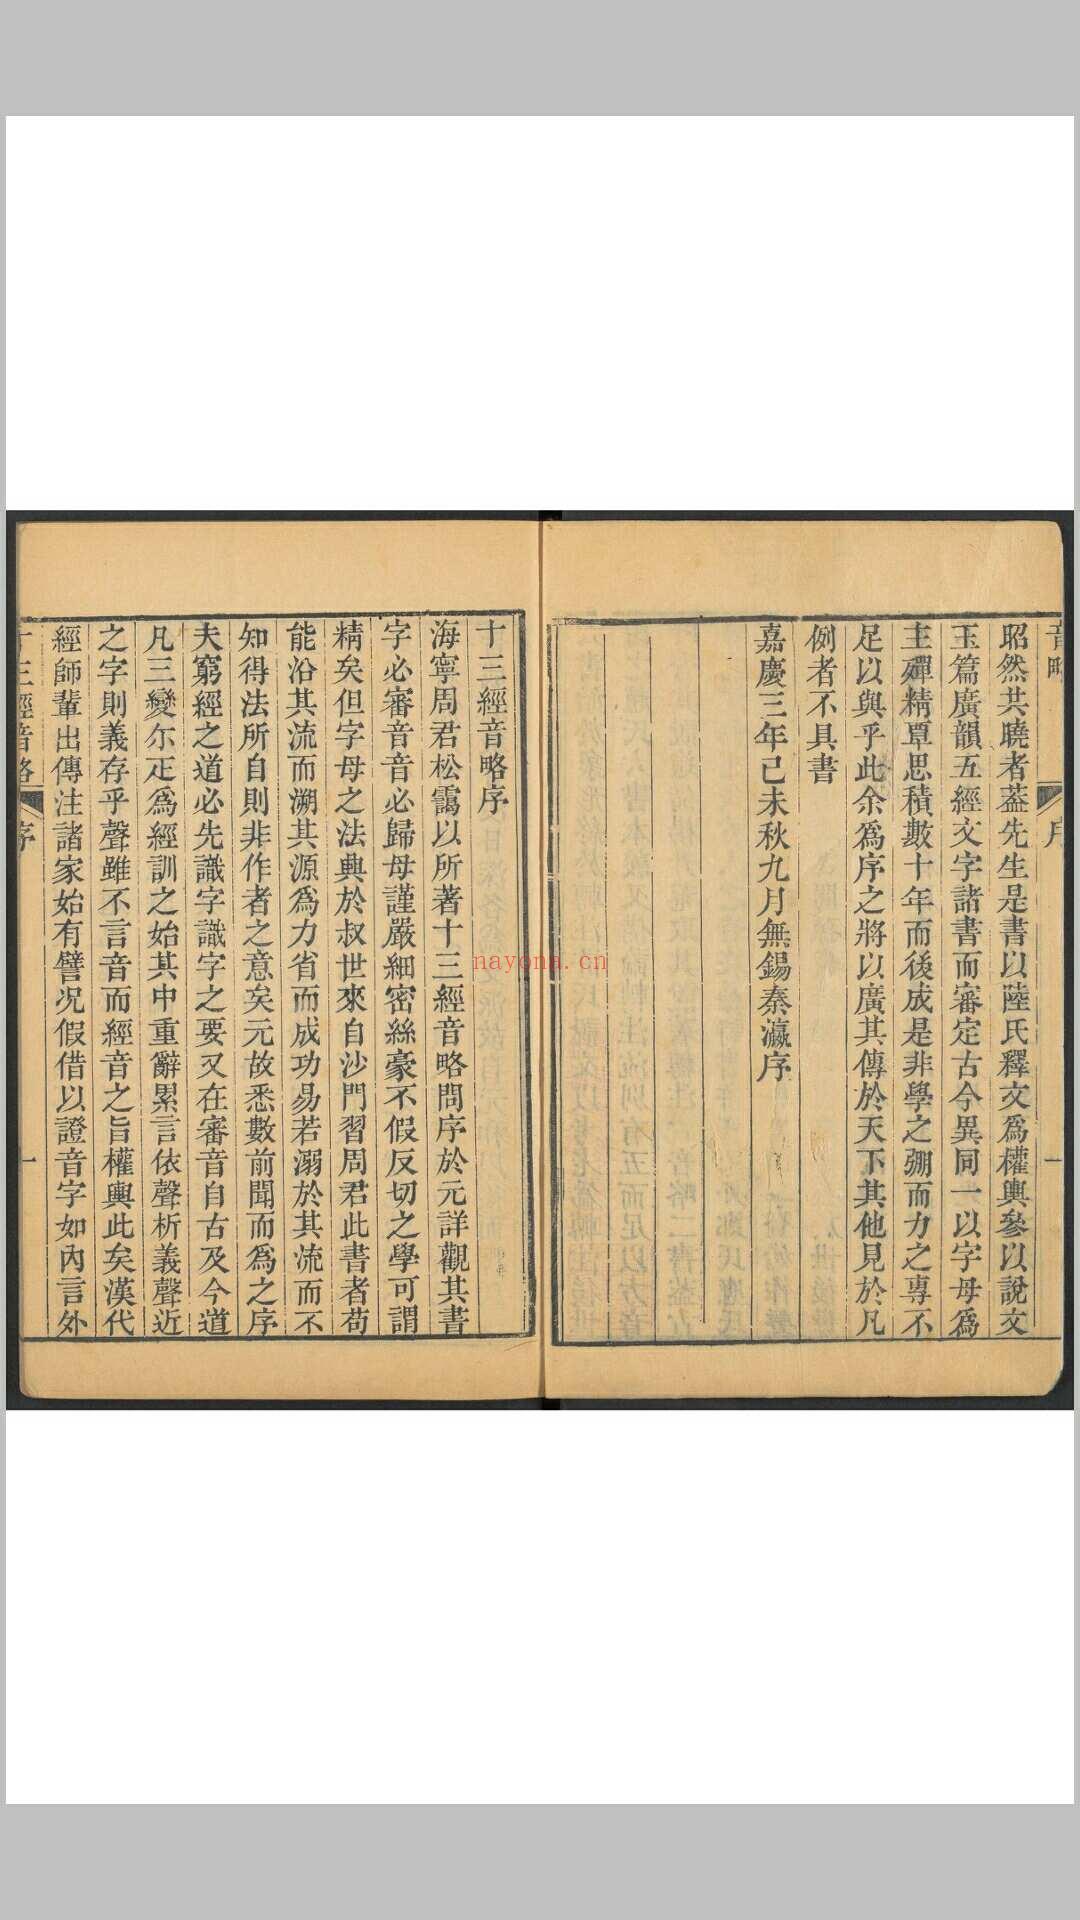 昭然共曉者葢先生是書以陸氏釋文爲權輿參以說文
玉篇廣韻五經文字諸書而審定古今異同一以字母爲
主殫精覃思積數十年而後成是非學之弸而力之專不
足以與乎此余爲序之將以廣其傳於天下其他見於凡
例者不具書
嘉慶三年己未秋九月無錫秦瀛序
十三經音略序
海寧周君松靄以所著十三經音略問序於元詳觀其書
字必審音音必歸母謹嚴細密絲豪不假反切之學可謂
精矣但字母之法興於叔世來自沙門習周君此書者苟
能沿其流而溯其源爲力省而成功易若溺於其流而不
知得法所自則非作者之意矣元故悉數前聞而爲之序
夫窮經之道必先識字識字之要又在審音自古及今道
凡三變尓疋爲經訓之始其中重辭累言依聲析義聲近
之字則義存乎聲雖不言音而經音之旨權輿此矣漢代
經師輩出傳注諸家始有譬況假借以證音字如內言外
十三經音略
序
一
音略
序
一
nayona.cn